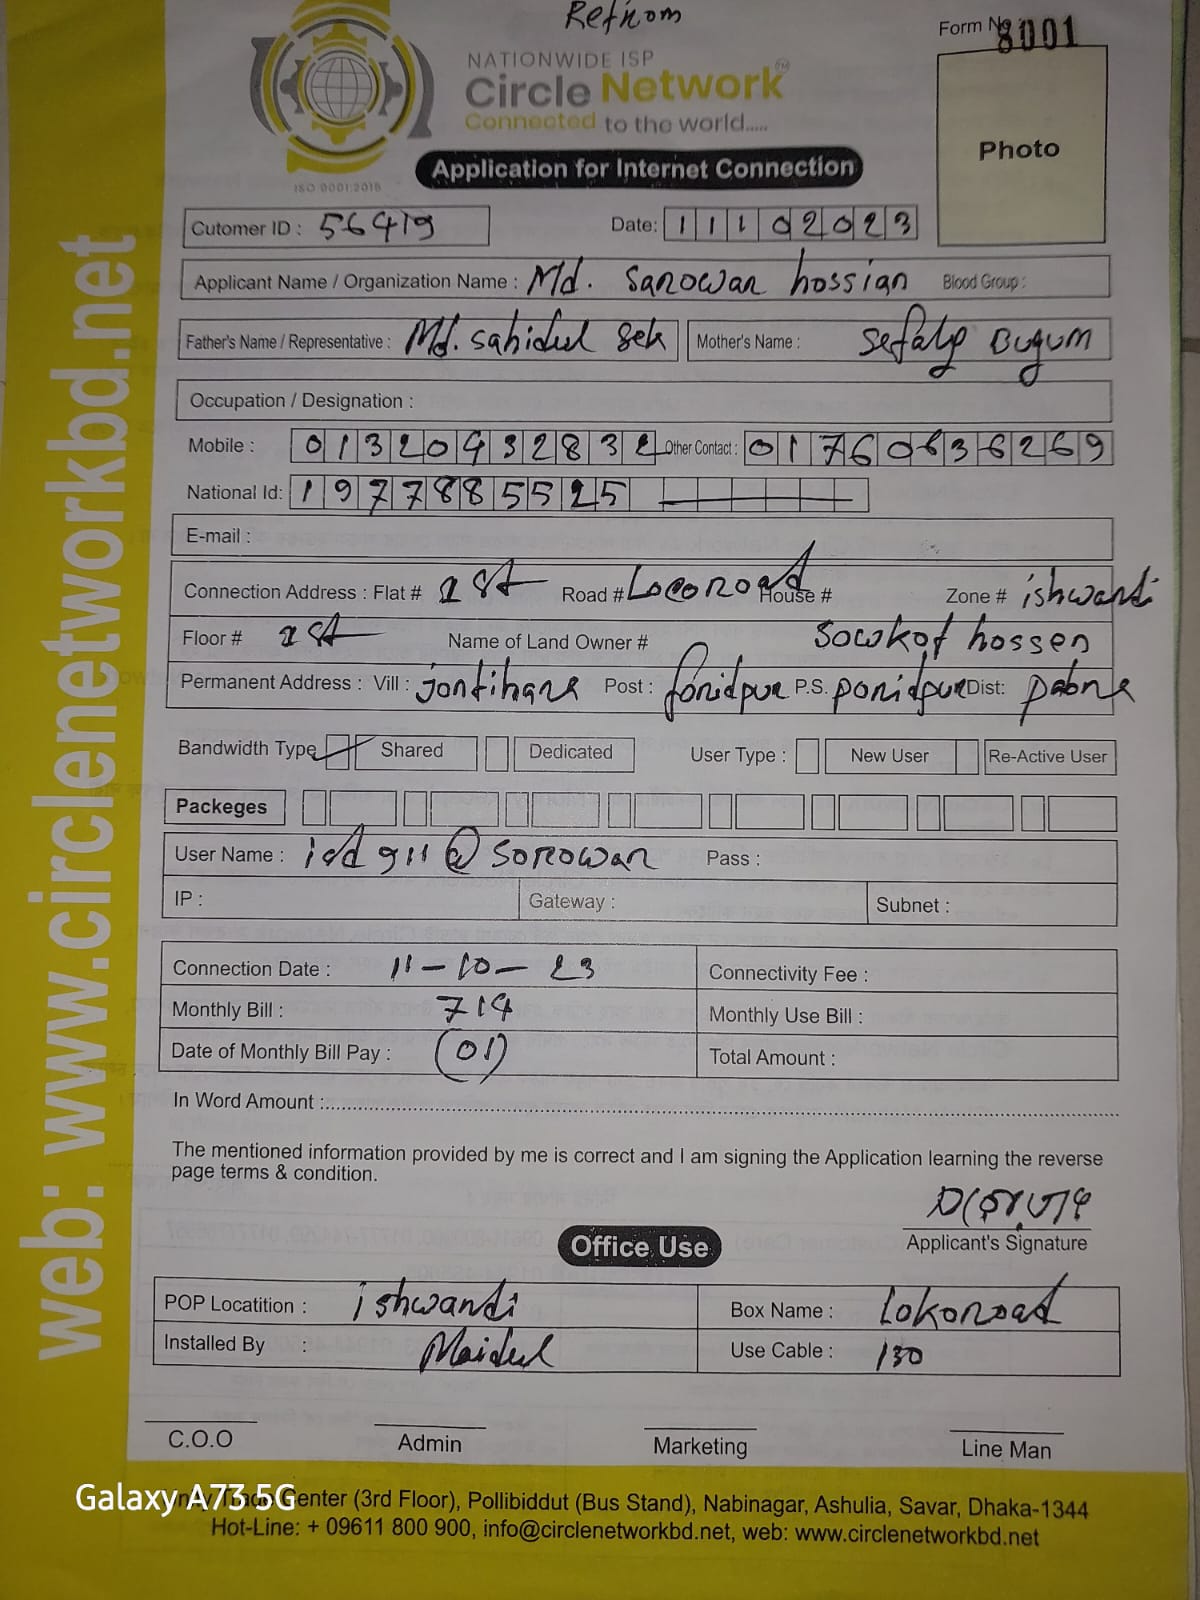 Refrom
Form No 8001
NATIONWIDE ISP
Circle Network TM
Connected to the world.....
ISO 9001:2015
Photo
Application for Internet Connection
Cutomer ID : 56419 Date: 11102023
Applicant Name / Organization Name : Md. Sarowar hossian Blood Group :
Father's Name / Representative : Md. Sahidul Sek Mother's Name : Sefaly Bugum
Occupation / Designation :
Mobile : 01320932832 Other Contact : 01760636269
National Id: 1977885525
E-mail :
Connection Address : Flat # 1st Road # Locoroad House # Zone # ishwardi
Floor # 1st Name of Land Owner # Sowkot hossen
Permanent Address : Vill : jontihara Post : foridpur P.S. poridpur Dist: pabna
Bandwidth Type Shared Dedicated User Type : New User Re-Active User
Packeges
User Name : idd911@sorowar Pass :
IP : Gateway : Subnet :
Connection Date : 11-10-23 Connectivity Fee :
Monthly Bill : 714 Monthly Use Bill :
Date of Monthly Bill Pay : (01) Total Amount :
In Word Amount :
The mentioned information provided by me is correct and I am signing the Application learning the reverse
page terms & condition.
Applicant's Signature
Office Use
POP Locatition : ishwardi Box Name : Lokoroad
Installed By : Maidul Use Cable : 130
C.O.O Admin Marketing Line Man
Galaxy A73 5G
Center (3rd Floor), Pollibiddut (Bus Stand), Nabinagar, Ashulia, Savar, Dhaka-1344
Hot-Line: + 09611 800 900, info@circlenetworkbd.net, web: www.circlenetworkbd.net
web: www.circlenetworkbd.net